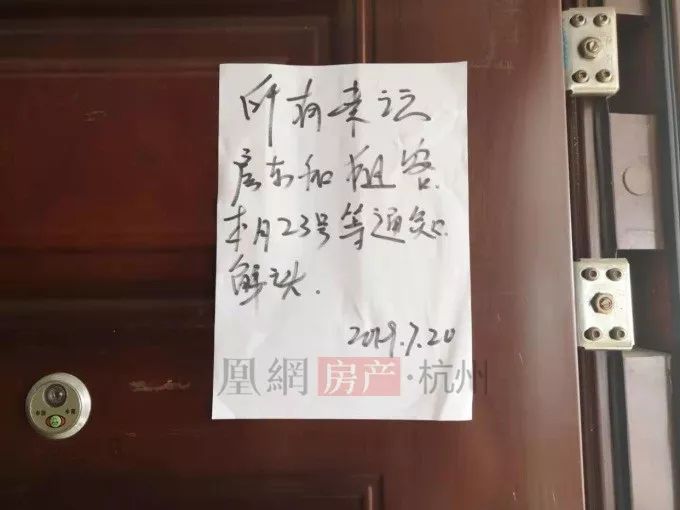 所有幸运
房东和租客
本月23号等通知
解决.
2019.7.20
凰網房产·杭州